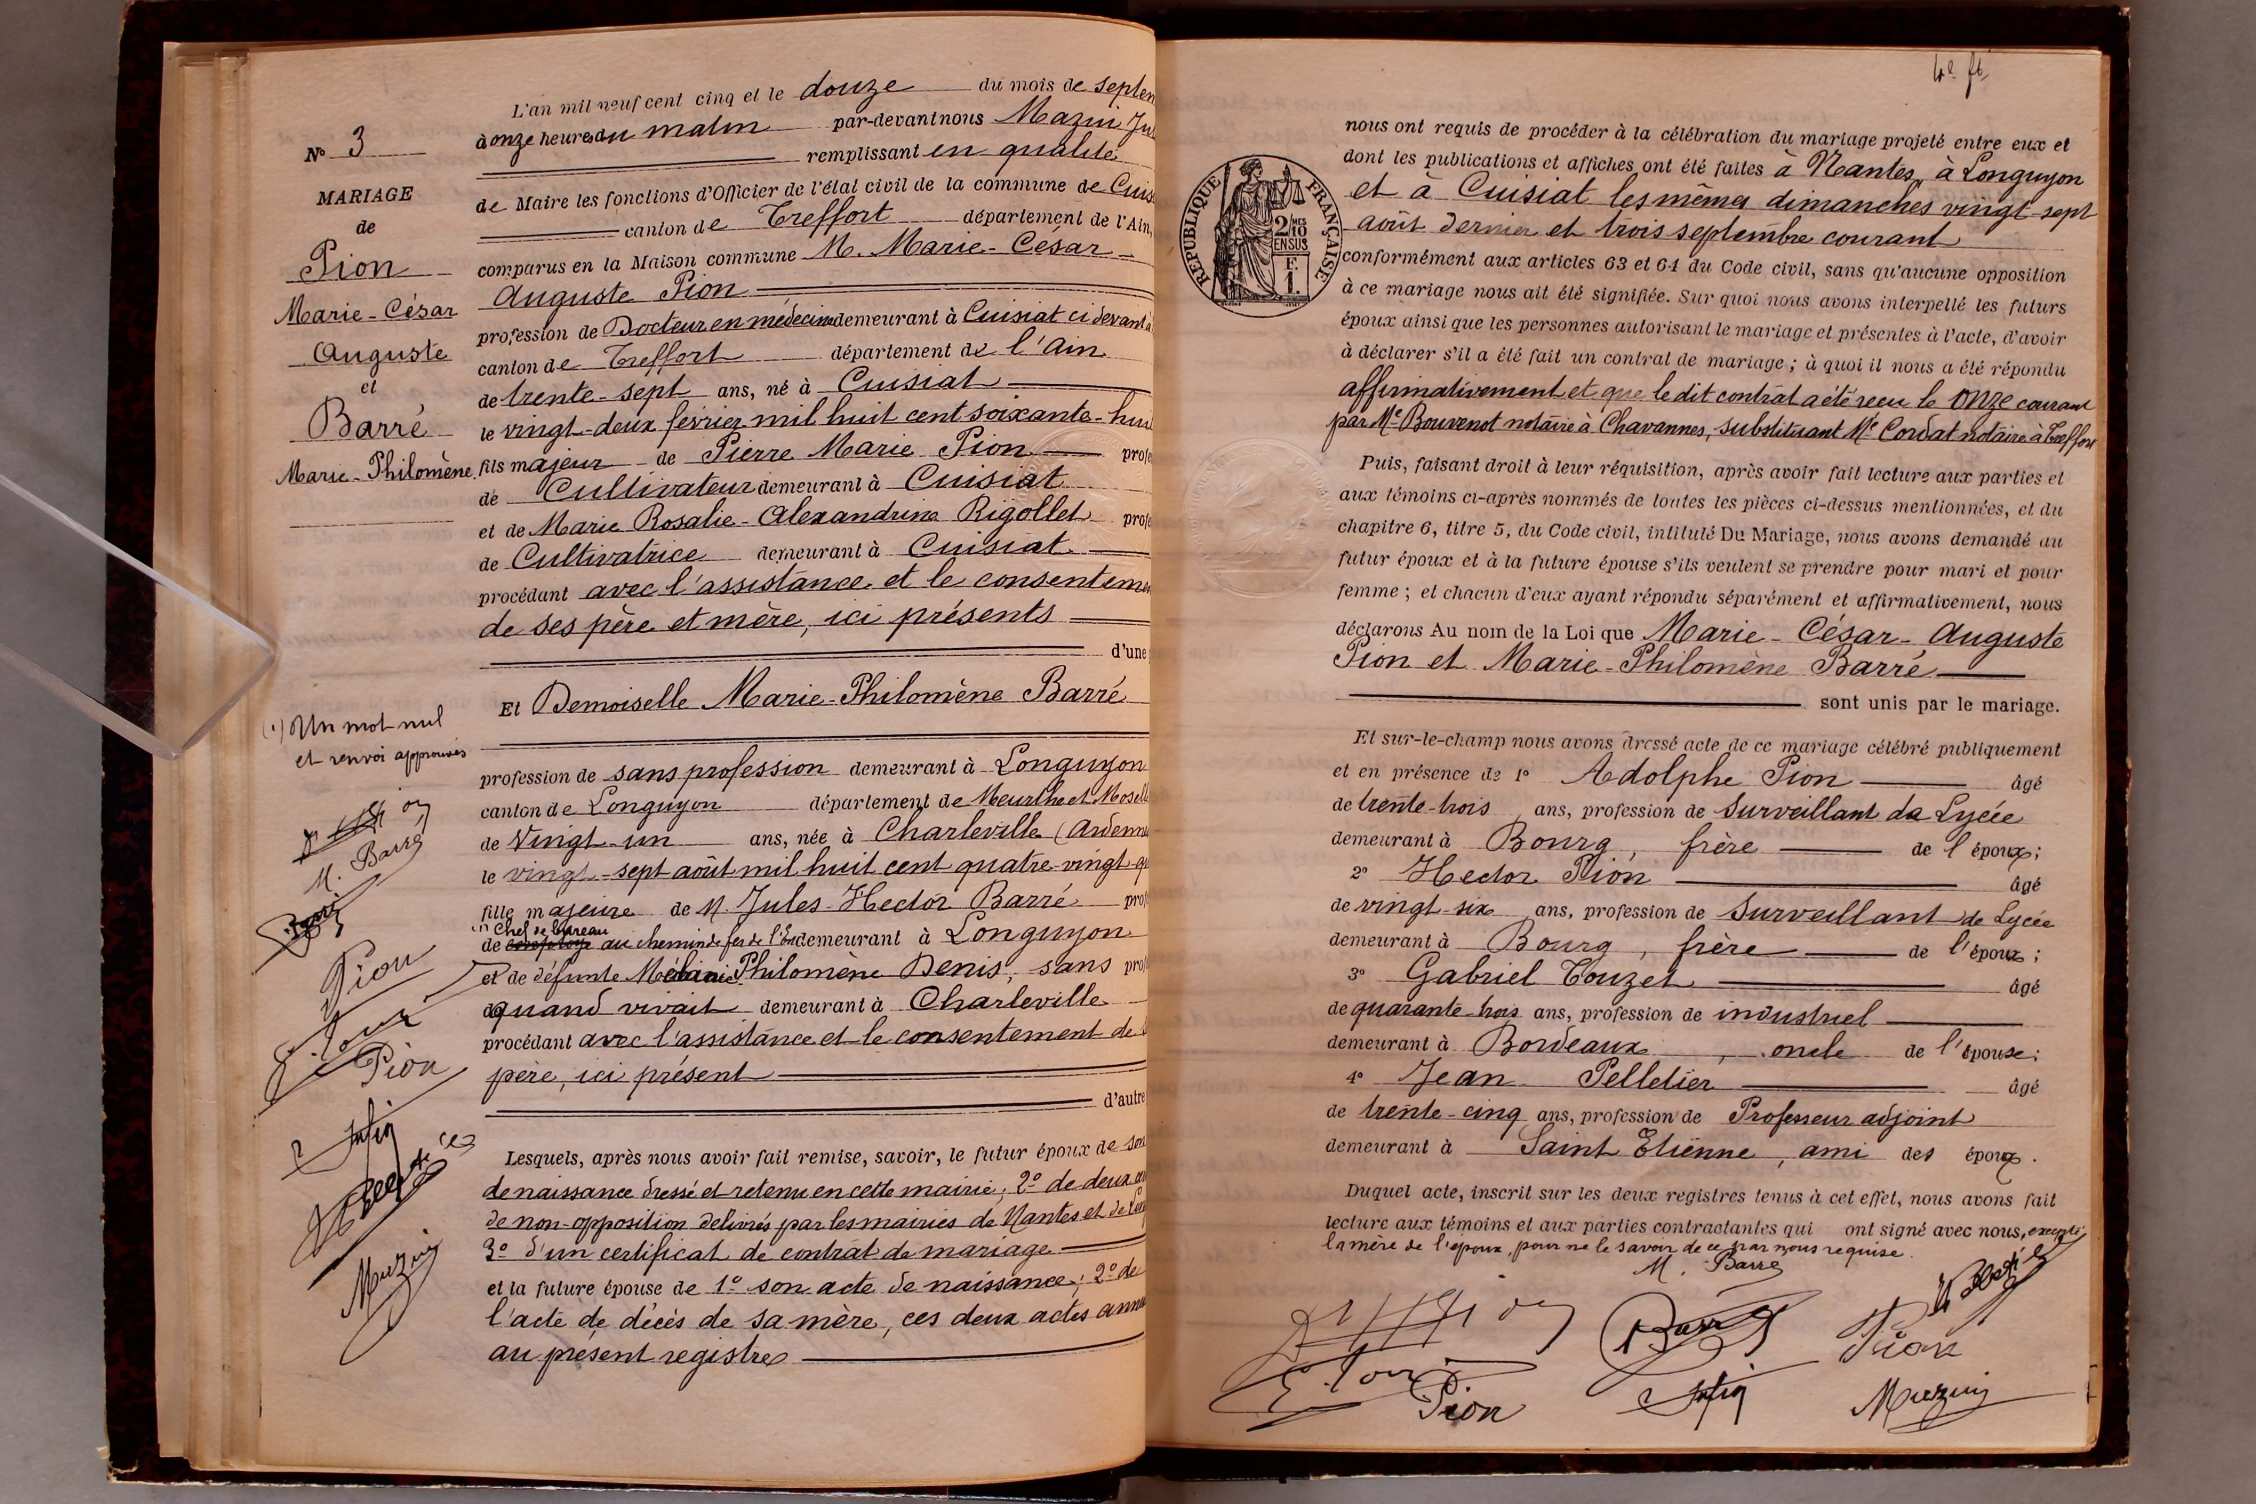 N° 3
MARIAGE
de
Pion
Marie-César
Auguste
et
Barré
Marie-Philomène
(1) Un mot nul
et renvoi approuvés
M. Barré
Barré
Pion
Pion
L'an mil neuf cent cinq et le douze du mois de septem
à onze heures du matin par-devant nous Mazuy Jul
remplissant en qualité
de Maire les fonctions d'Officier de l'état civil de la commune de Cuis
canton de Treffort département de l'Ain,
comparus en la Maison commune M. Marie-César
Auguste Pion
profession de Docteur en médecine demeurant à Cuisiat ci devant à
canton de Treffort département de l'Ain
de trente-sept ans, né à Cuisiat
le vingt-deux février mil huit cent soixante-hui
fils majeur de Pierre Marie Pion profe
de Cultivateur demeurant à Cuisiat
et de Marie Rosalie-Alexandrine Rigollet profe
de Cultivatrice demeurant à Cuisiat
procédant avec l'assistance et le consenteme
de ses père et mère, ici présents
d'une
Et Demoiselle Marie-Philomène Barré
profession de sans profession demeurant à Longuyon
canton de Longuyon département de Meurthe et Mosell
de Vingt-un ans, née à Charleville (Ardenne
le vingt-sept août mil huit cent quatre-vingt-qu
fille majeure de M. Jules-Hector Barré prof
(1) Chef de bureau
de employé au chemin de fer de l'Est demeurant à Longuyon
et de défunte Mélanie Philomène Denis, sans prof
quand vivait demeurant à Charleville
procédant avec l'assistance et le consentement de
père, ici présent
d'autre
Lesquels, après nous avoir fait remise, savoir, le futur époux de son
de naissance dressé et retenu en cette mairie; 2° de deux
de non-opposition délivrés par les mairies de Nantes et de Lon
3° d'un certificat de contrat de mariage
et la future épouse de 1° son acte de naissance; 2° de
l'acte de décès de sa mère, ces deux actes anne
au présent registre
RÉPUBLIQUE FRANÇAISE
2/10 MES
EN SUS
F.
1.
nous ont requis de procéder à la célébration du mariage projeté entre eux et
dont les publications et affiches ont été faites à Nantes, à Longuyon
et à Cuisiat les mêmes dimanches vingt-sept
août dernier et trois septembre courant
conformément aux articles 63 et 64 du Code civil, sans qu'aucune opposition
à ce mariage nous ait été signifiée. Sur quoi nous avons interpellé les futurs
époux ainsi que les personnes autorisant le mariage et présentes à l'acte, d'avoir
à déclarer s'il a été fait un contrat de mariage; à quoi il nous a été répondu
affirmativement et que le dit contrat a été reçu le onze courant
par Me Bouvenot notaire à Chavannes, substituant Me Cordat notaire à Treffort
Puis, faisant droit à leur réquisition, après avoir fait lecture aux parties et
aux témoins ci-après nommés de toutes les pièces ci-dessus mentionnées, et du
chapitre 6, titre 5, du Code civil, intitulé Du Mariage, nous avons demandé au
futur époux et à la future épouse s'ils veulent se prendre pour mari et pour
femme; et chacun d'eux ayant répondu séparément et affirmativement, nous
déclarons Au nom de la Loi que Marie-César-Auguste
Pion et Marie-Philomène Barré
sont unis par le mariage.
Et sur-le-champ nous avons dressé acte de ce mariage célébré publiquement
et en présence de 1° Adolphe Pion âgé
de trente-trois ans, profession de Surveillant de Lycée
demeurant à Bourg, frère de l'époux;
2° Hector Pion âgé
de vingt-six ans, profession de Surveillant de Lycée
demeurant à Bourg, frère de l'époux;
3° Gabriel Touzet âgé
de quarante-trois ans, profession de industriel
demeurant à Bordeaux, oncle de l'épouse;
4° Jean Pelletier âgé
de trente-cinq ans, profession de Professeur adjoint
demeurant à Saint Etienne, ami des époux.
Duquel acte, inscrit sur les deux registres tenus à cet effet, nous avons fait
lecture aux témoins et aux parties contractantes qui ont signé avec nous, excepté
la mère de l'époux, pour ne le savoir de ce par nous requise.
M. Barré
Barré
Pion
Pion